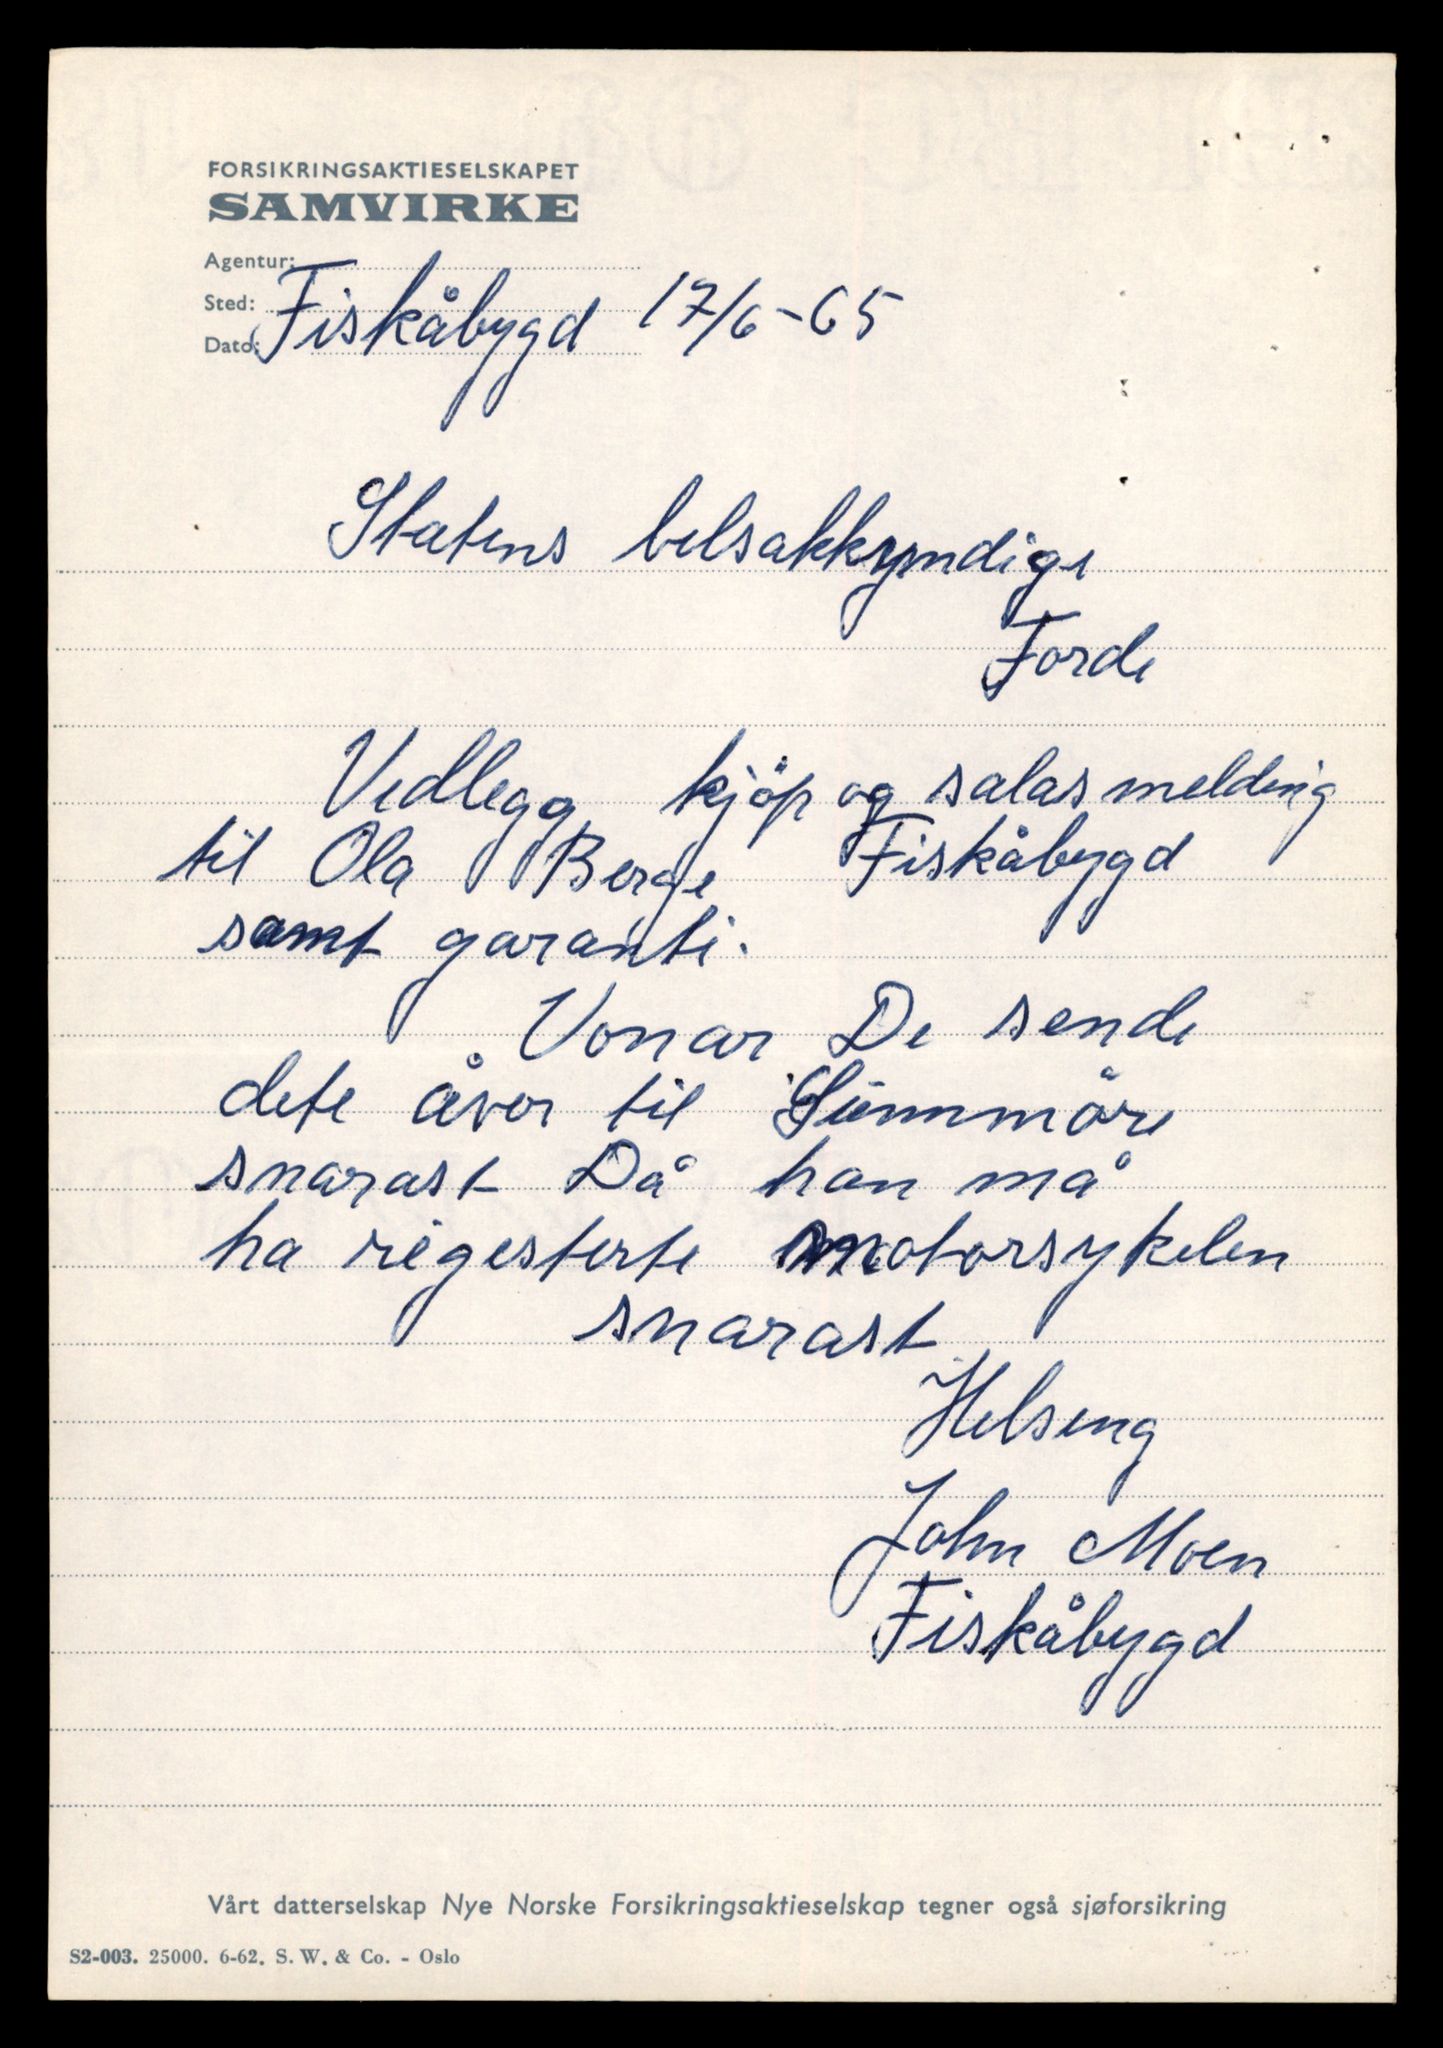 FORSIKRINGSAKTIESELSKAPET
SAMVIRKE
Agentur:
Sted:
Dato:
Fiskåbygd 17/6-65
Statens belsakkyndige
Forde
Vedlegg kjöp og salasmelding
til Ola Berge Fiskåbygd
samt garanti.
Vonar De sende
dete åver til Sunnmöre
snarast Då han må
ha regesterte motorsykelen
snarast
Helseng
John Moen
Fiskåbygd
Vårt datterselskap Nye Norske Forsikringsaktieselskap tegner også sjøforsikring
S2-003. 25000. 6-62. S. W. & Co. - Oslo